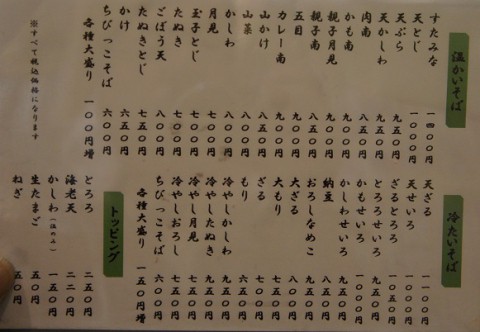 温かいそば
すたみな 一四〇〇円
天とじ 一〇〇〇円
天ぷら 九五〇円
天かしわ 九五〇円
肉南 九〇〇円
かも南 九〇〇円
親子月見 八五〇円
親子南 八〇〇円
五目 八五〇円
カレー南 八五〇円
山かけ 八〇〇円
山菜 八〇〇円
かしわ 八〇〇円
月見 七〇〇円
玉子とじ 七五〇円
たぬき 七〇〇円
ごぼう天 八〇〇円
たぬきとじ 七五〇円
かけ 六五〇円
ちびっこそば 六〇〇円
各種大盛り 一〇〇円増
※すべて税込価格になります
冷たいそば
天ざる 一一〇〇円
天せいろ 一一〇〇円
ざるとろろ 一〇五〇円
とろろせいろ 一〇五〇円
かもせいろ 一〇〇〇円
かしわせいろ 九五〇円
納豆 八五〇円
おろしなめこ 九五〇円
大ざる 八〇〇円
大もり 七五〇円
ざる 七〇〇円
もり 六五〇円
冷やしかしわ 九五〇円
冷やしたぬき 八五〇円
冷やし月見 七五〇円
冷やしおろし 七五〇円
ちびっこそば 六〇〇円
各種大盛り 一五〇円増
トッピング
とろろ 二五〇円
海老天 二二〇円
かしわ（温のみ） 一五〇円
生たまご 五〇円
ねぎ 五〇円